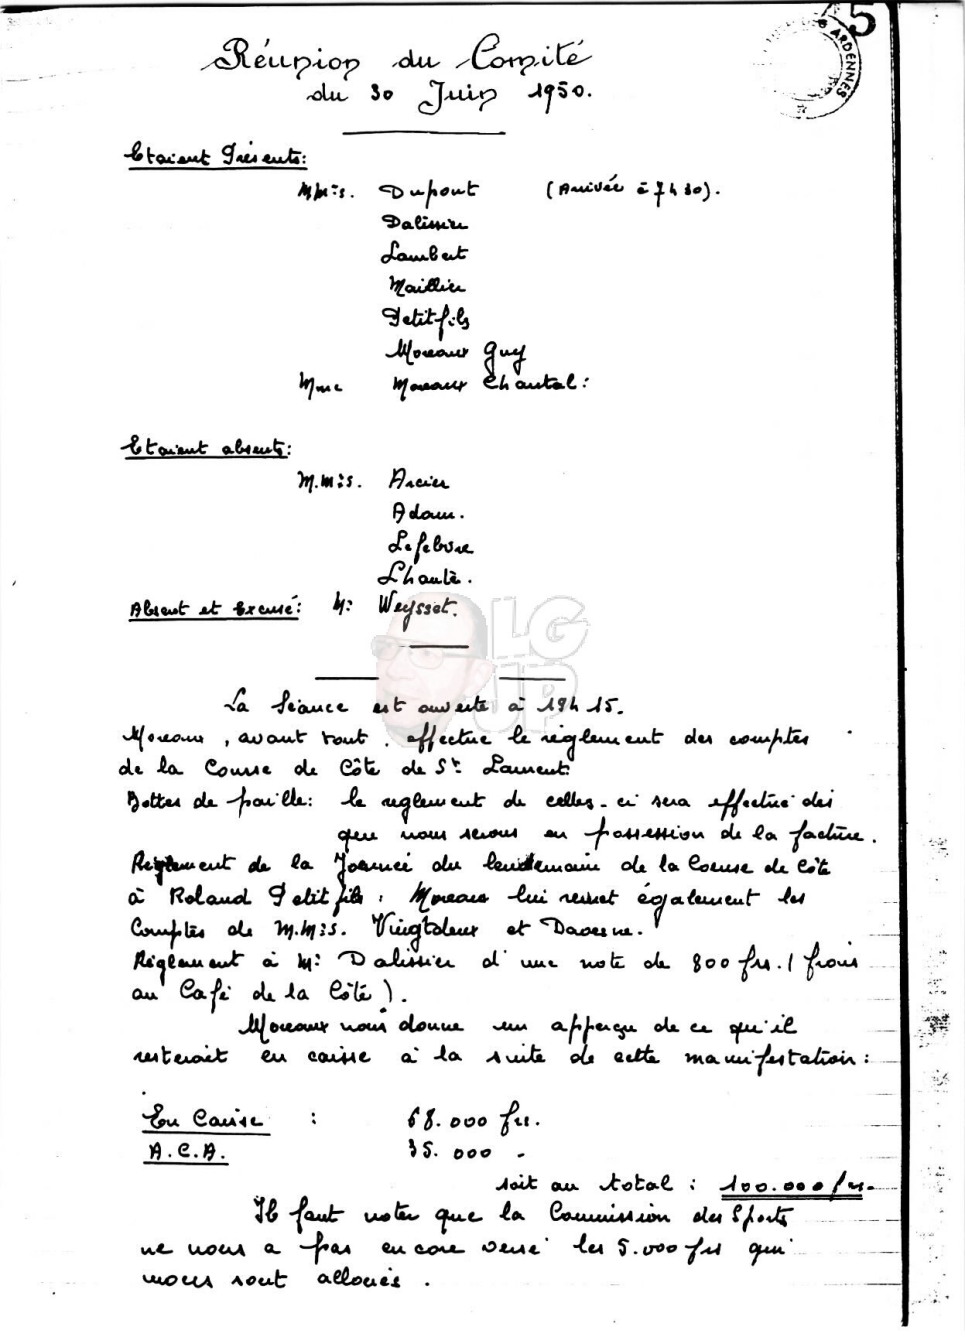 5
ARDENNES
Réunion du Comité
du 30 Juin 1950.
Etaient Présents:
M.M:s. Dupont (Arrivée à 7h30).
Dalissier
Lambert
Maillier
Petitfils
Moreaux Guy
Mme Moreaux Chantal:
Etaient absents:
M.M:s. Arcier
Adam.
Lefebvre
Lhauté.
Absent et Excusé: M: Weysset.
LG
JP
La Séance est ouverte à 19h15.
Moreaux, avant tout, effectue le règlement des comptes
de la Course de Côte de St Laurent.
Bottes de paille: le reglement de celles-ci sera effectué dès
que nous serons en possession de la facture.
Règlement de la Journée du lendemain de la Course de Côte
à Roland Petitfils, Moreaux lui remet également les
Comptes de M.M:s. Vingtdeux et Davesne.
Règlement à M: Dalissier d'une note de 800 frs. (frais
au Café de la Côte).
Moreaux nous donne un apperçu de ce qu'il
resterait en caisse à la suite de cette manifestation:
En Caisse : 68.000 frs.
A.C.A. 35.000 -
soit au total: 100.000 frs.
Il faut noter que la Commission des Sports
ne nous a pas encore versé les 5.000 frs qui
nous sont alloués.